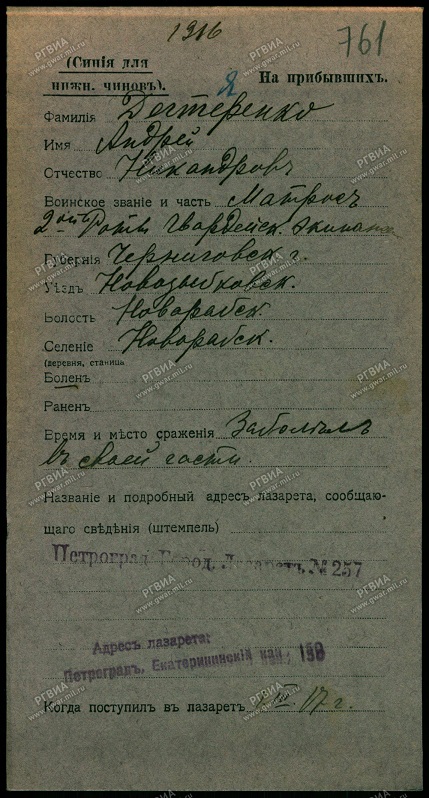 1916
761
(Синія для
нижн. чиновъ).
Я
На прибывшихъ.
Фамилія Дегтеренко
Имя Андрей
Отчество Никандровъ
Воинское званіе и часть Матросъ
2ой Роты Гвардейск. Экипажа
Губернія Черниговск. г.
Уѣздъ Новозыбковск.
Волость Новоробск.
Селеніе Новоробск.
(деревня, станица
Боленъ
Раненъ
Время и мѣсто сраженія Заболѣлъ
въ своей части.
Названіе и подробный адресъ лазарета, сообщаю-
щаго свѣдѣнія (штемпель)
Петроград. Город. Лазаретъ № 257
Адресъ лазарета:
Петроградъ, Екатерининскій кан. 150
Когда поступилъ въ лазаретъ III 17 г.
РГВИА
www.gwar.mil.ru